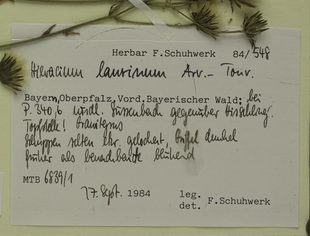 Herbar F.Schuhwerk 84/548
Hieracium laurinum Arv.-Touv.
Bayern,Oberpfalz,Vord.Bayerischer Wald: bei
P. 340,6 nördl. gegenüber
Topfstelle! Granitgrus
Schuppen selten gelockert, Griffel dunkel
früher als benachbarte blühend
MTB 6839/1
17. Sept. 1984 leg.
det. F.Schuhwerk